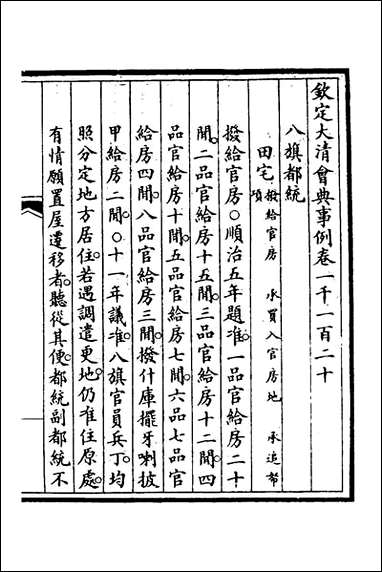 欽定大清會典事例卷一千一百二十
八旗都統
田宅 撥給官房 承買入官房地 承追帑項
撥給官房○順治五年題准一品官給房二十
間。二品官給房十五間。三品官給房十二間。四
品官給房十間。五品官給房七間。六品七品官
給房四間。八品官給房三間。撥什庫擺牙喇披
甲給房二間。○十一年議准八旗官員兵丁。均
照分定地方居住。若遇調遣更地。仍准住原處。
有情願置屋遷移者。聽從其便。都統副都統不